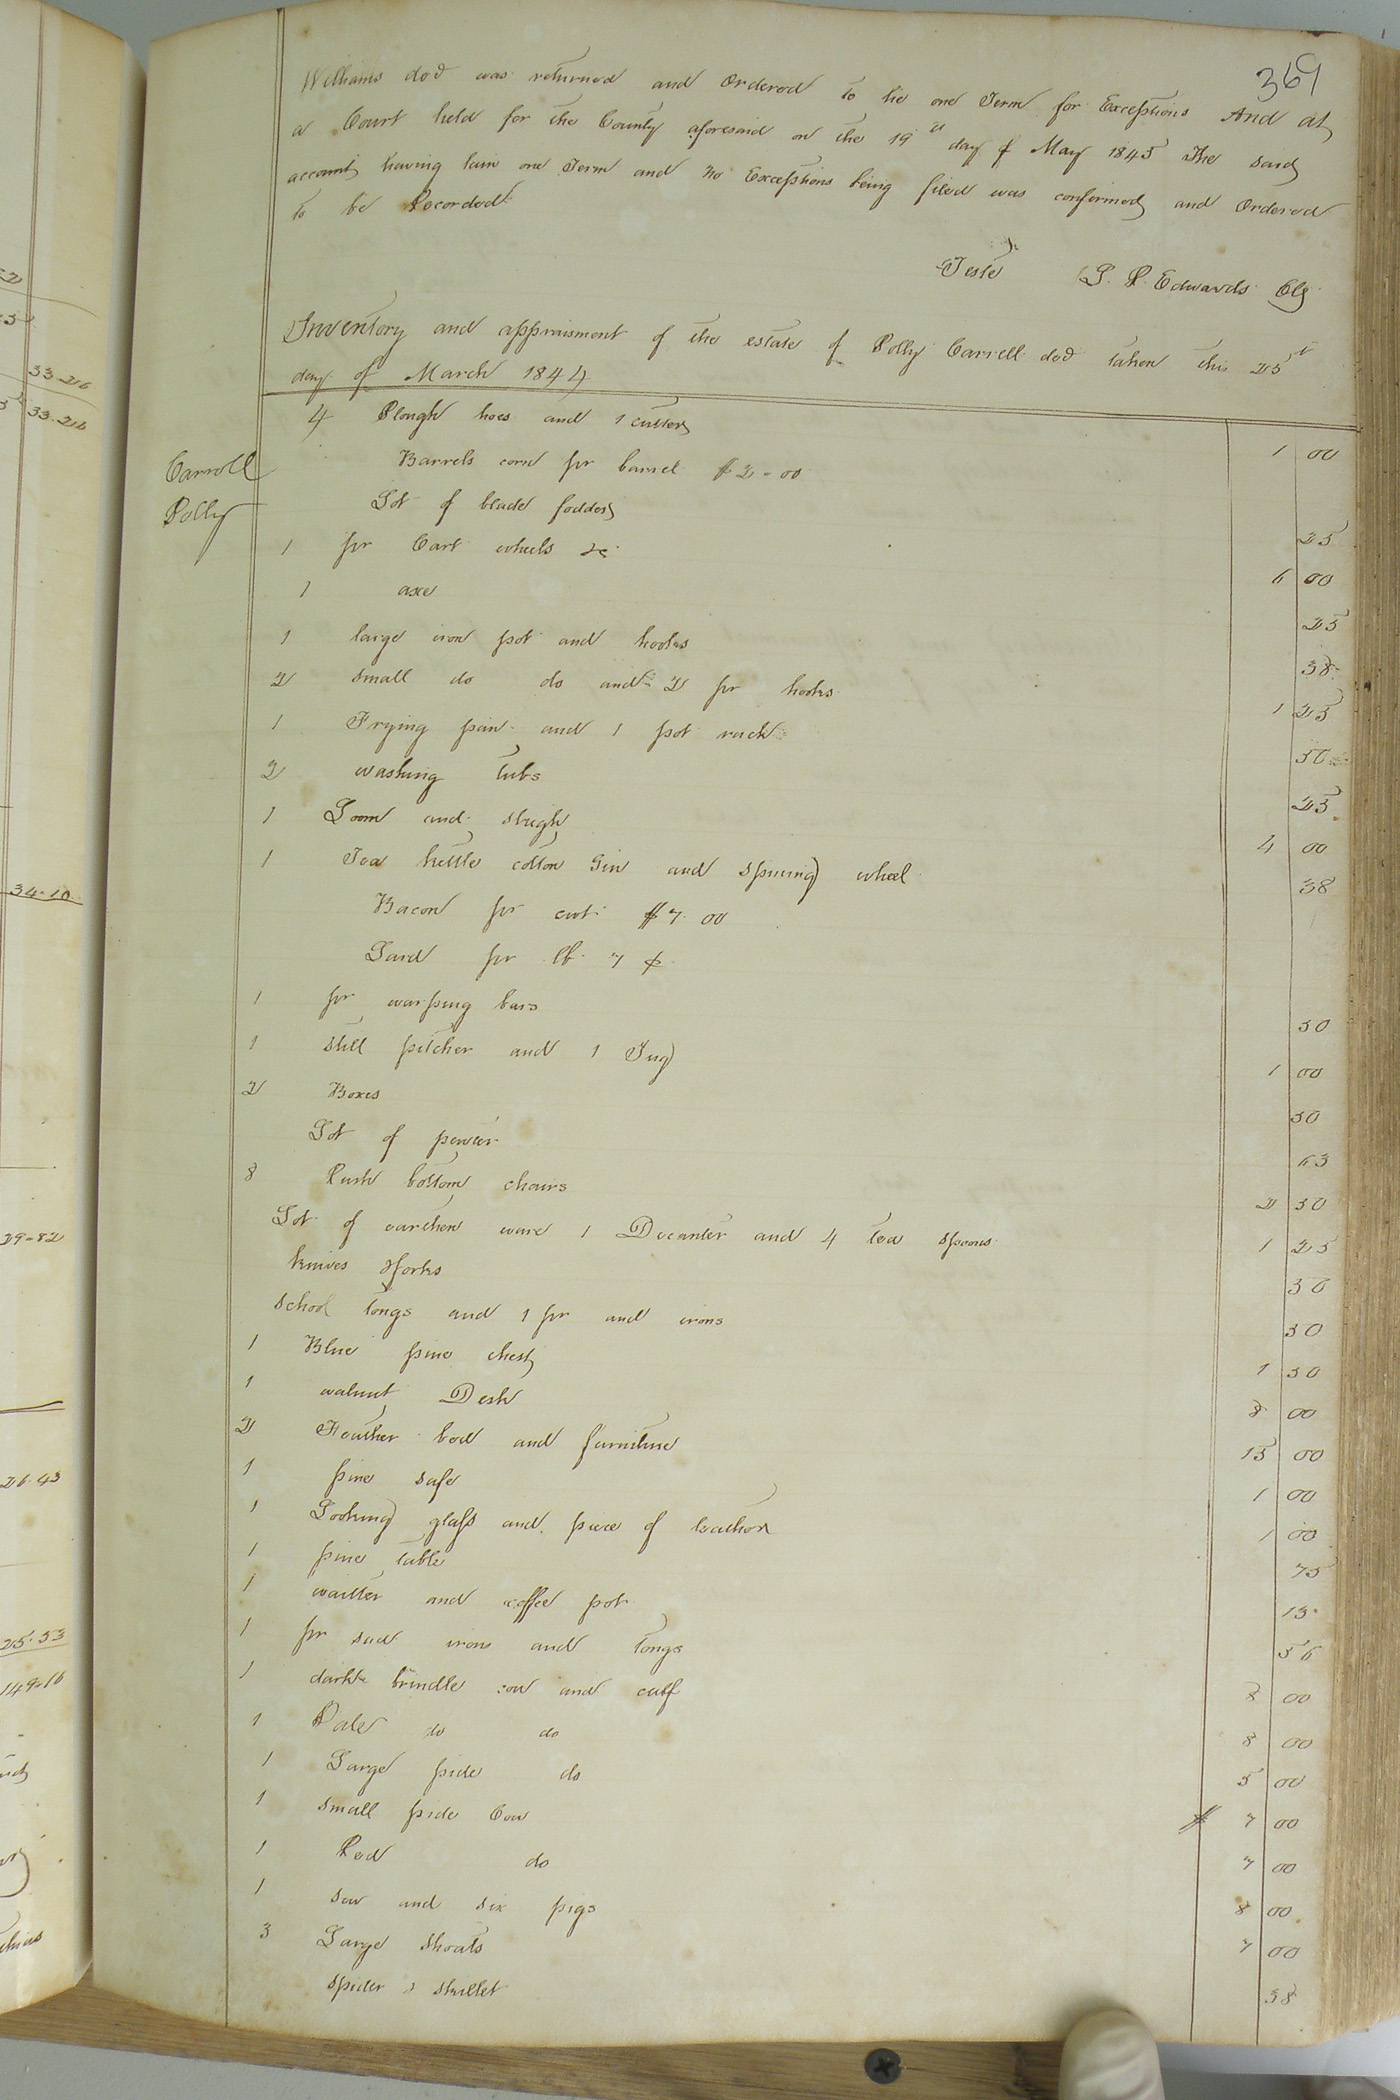 369
Williams decd was returned and Ordered to lie one Term for Exceptions And at
a Court held for the County aforesaid on the 19th day of May 1845 The said
account having lain one Term and no Exceptions being filed was confirmed and Ordered
to be Recorded
Teste L. R. Edwards Clk
Inventory and appraisment of the estate of Polly Carrell decd taken this 25th
day of March 1844
Carroll
Polly
4 Plough hoes and 1 cutter 1 00
Barrels corn pr barrel $2-00
Lot of blade fodder 25
1 pr Cart wheels &c 6 00
1 axe 25
1 large iron pot and hooks 38
2 small do do and 2 pr hooks 1 25
1 Frying pan and 1 pot rack 50
2 washing tubs 25
1 Loom and sleigh 4 00
1 Tea kettle cotton Gin and spining wheel 38
Bacon pr cwt $7 00
Lard pr lb 7 ¢
1 pr warping bars 50
1 still pitcher and 1 Jug 1 00
2 Boxes 50
Lot of pewter 63
8 Rush bottom chairs 2 50
Lot of earthen ware 1 Decanter and 4 tea spoons 1 25
knives & forks 30
tongs and 1 pr and irons 50
1 Blue pine chest 1 50
1 walnut Desk 8 00
2 Feather bed and furniture 15 00
1 pine safe 1 00
1 Looking glass and piece of leather 1 00
1 pine table 75
1 waiter and coffee pot 15
1 pr sad irons and tongs 56
1 dark brindle cow and calf 8 00
1 Pale do do 8 00
1 Large pide do 5 00
1 small pide Cow $ 7 00
1 Red do 7 00
1 sow and six pigs 8 00
3 Large shoats 7 00
spider & skillet 38
33-26
33-26
34-10
29-82
26-43
25-53
149-16